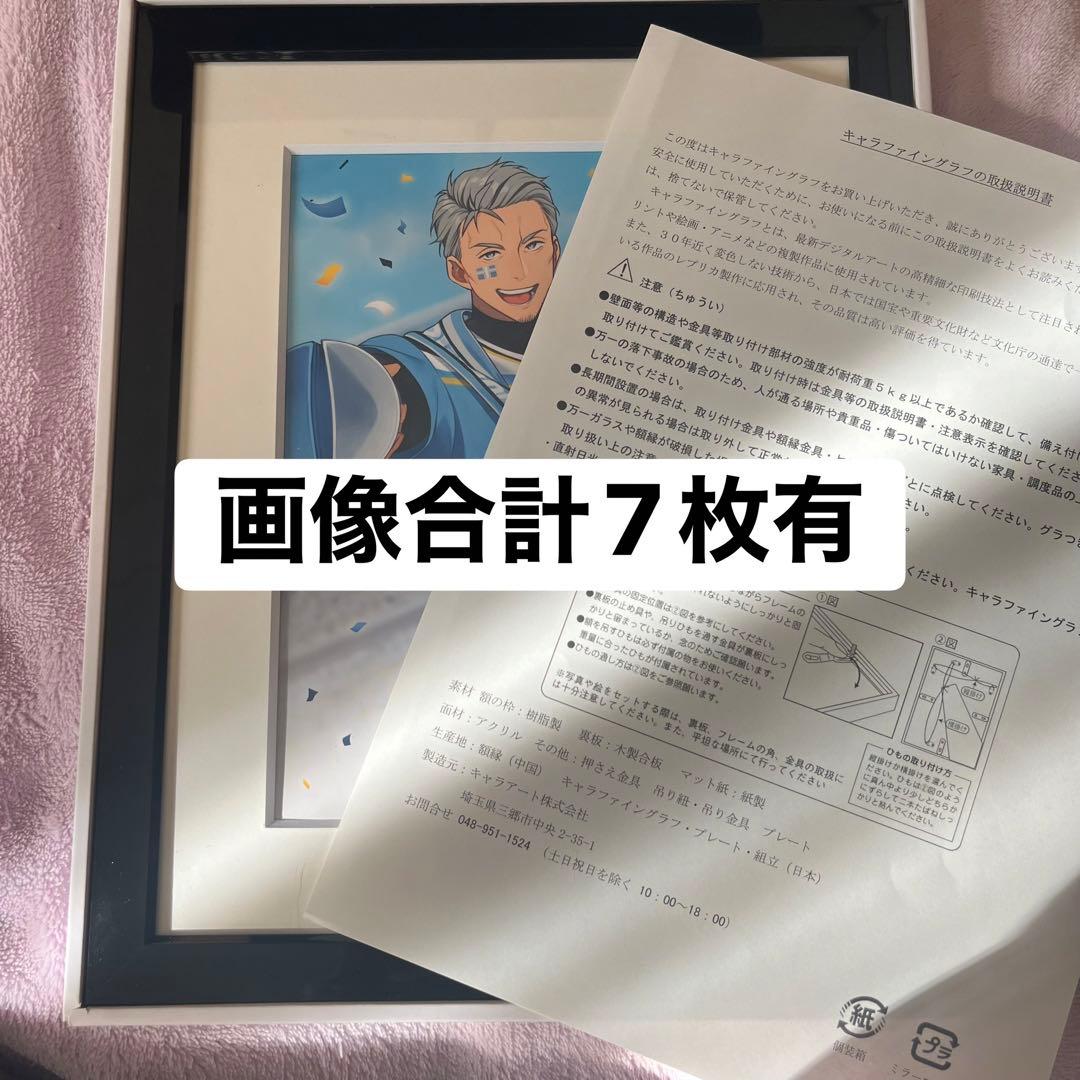 キャラファイングラフの取扱説明書
この度はキャラファイングラフをお買い上げいただき、誠にありがとうございます
安全に使用していただくために、お使いになる前にこの取扱説明書をよくお読みくだ
は、捨てないで保管してください。
キャラファイングラフとは、最新デジタルアートの高精細な印刷技法として注目され
リントや絵画・アニメなどの複製作品に使用されています。
また、30年近く変色しない技術から、日本では国宝や重要文化財など文化庁の通達で
いる作品のレプリカ製作に応用され、その品質は高い評価を得ています。
注意（ちゅうい）
●壁面等の構造や金具等取り付け部材の強度が耐荷重5kg以上であるか確認して、備え付け
取り付けてご鑑賞ください。取り付け時は金具等の取扱説明書・注意表示を確認してくださ
●万一の落下事故の場合のため、人が通る場所や貴重品・傷ついてはいけない家具・調度品の
しないでください。
●長期間設置の場合は、取り付け金具や額縁金具・
とに点検してください。グラつき
の異常が見られる場合は取り外して正常
●万一ガラスや額縁が破損した
取り扱い上の注意
・直射日光
画像合計7枚有
ください。キャラファイングラ
ながらフレームの
れないようにしっかりと固
の固定位置は②図を参考にしてください。
●裏板の止め具や、吊りひもを通す金具が裏板にしっ
かりと留まっているか、念のためご確認願います。
●額を吊すひもは必ず付属の物をお使いください。
重量に合ったひもが付属されています。
●ひもの通し方は②図をご参照願います。
※写真や絵をセットする際は、裏板、フレームの角、金具の取扱に
は十分注意してください。また、平坦な場所にて行ってください
①図
②図
縦掛け
横掛け
ひもの取り付け方
縦掛けか横掛けを選んでく
ださい。ひもは②図のよう
に真ん中より少しどちらか
にずらして二本たばねしっ
かりと結んでください。
素材 額の枠：樹脂製 裏板：木製合板 マット紙：紙製
面材：アクリル その他：押さえ金具 吊り紐・吊り金具 プレート
生産地：額縁（中国） キャラファイングラフ・プレート・組立（日本）
製造元：キャラアート株式会社
埼玉県三郷市中央2-35-1
お問合せ 048-951-1524 （土日祝日を除く 10：00～18：00）
紙
個装箱
プラ